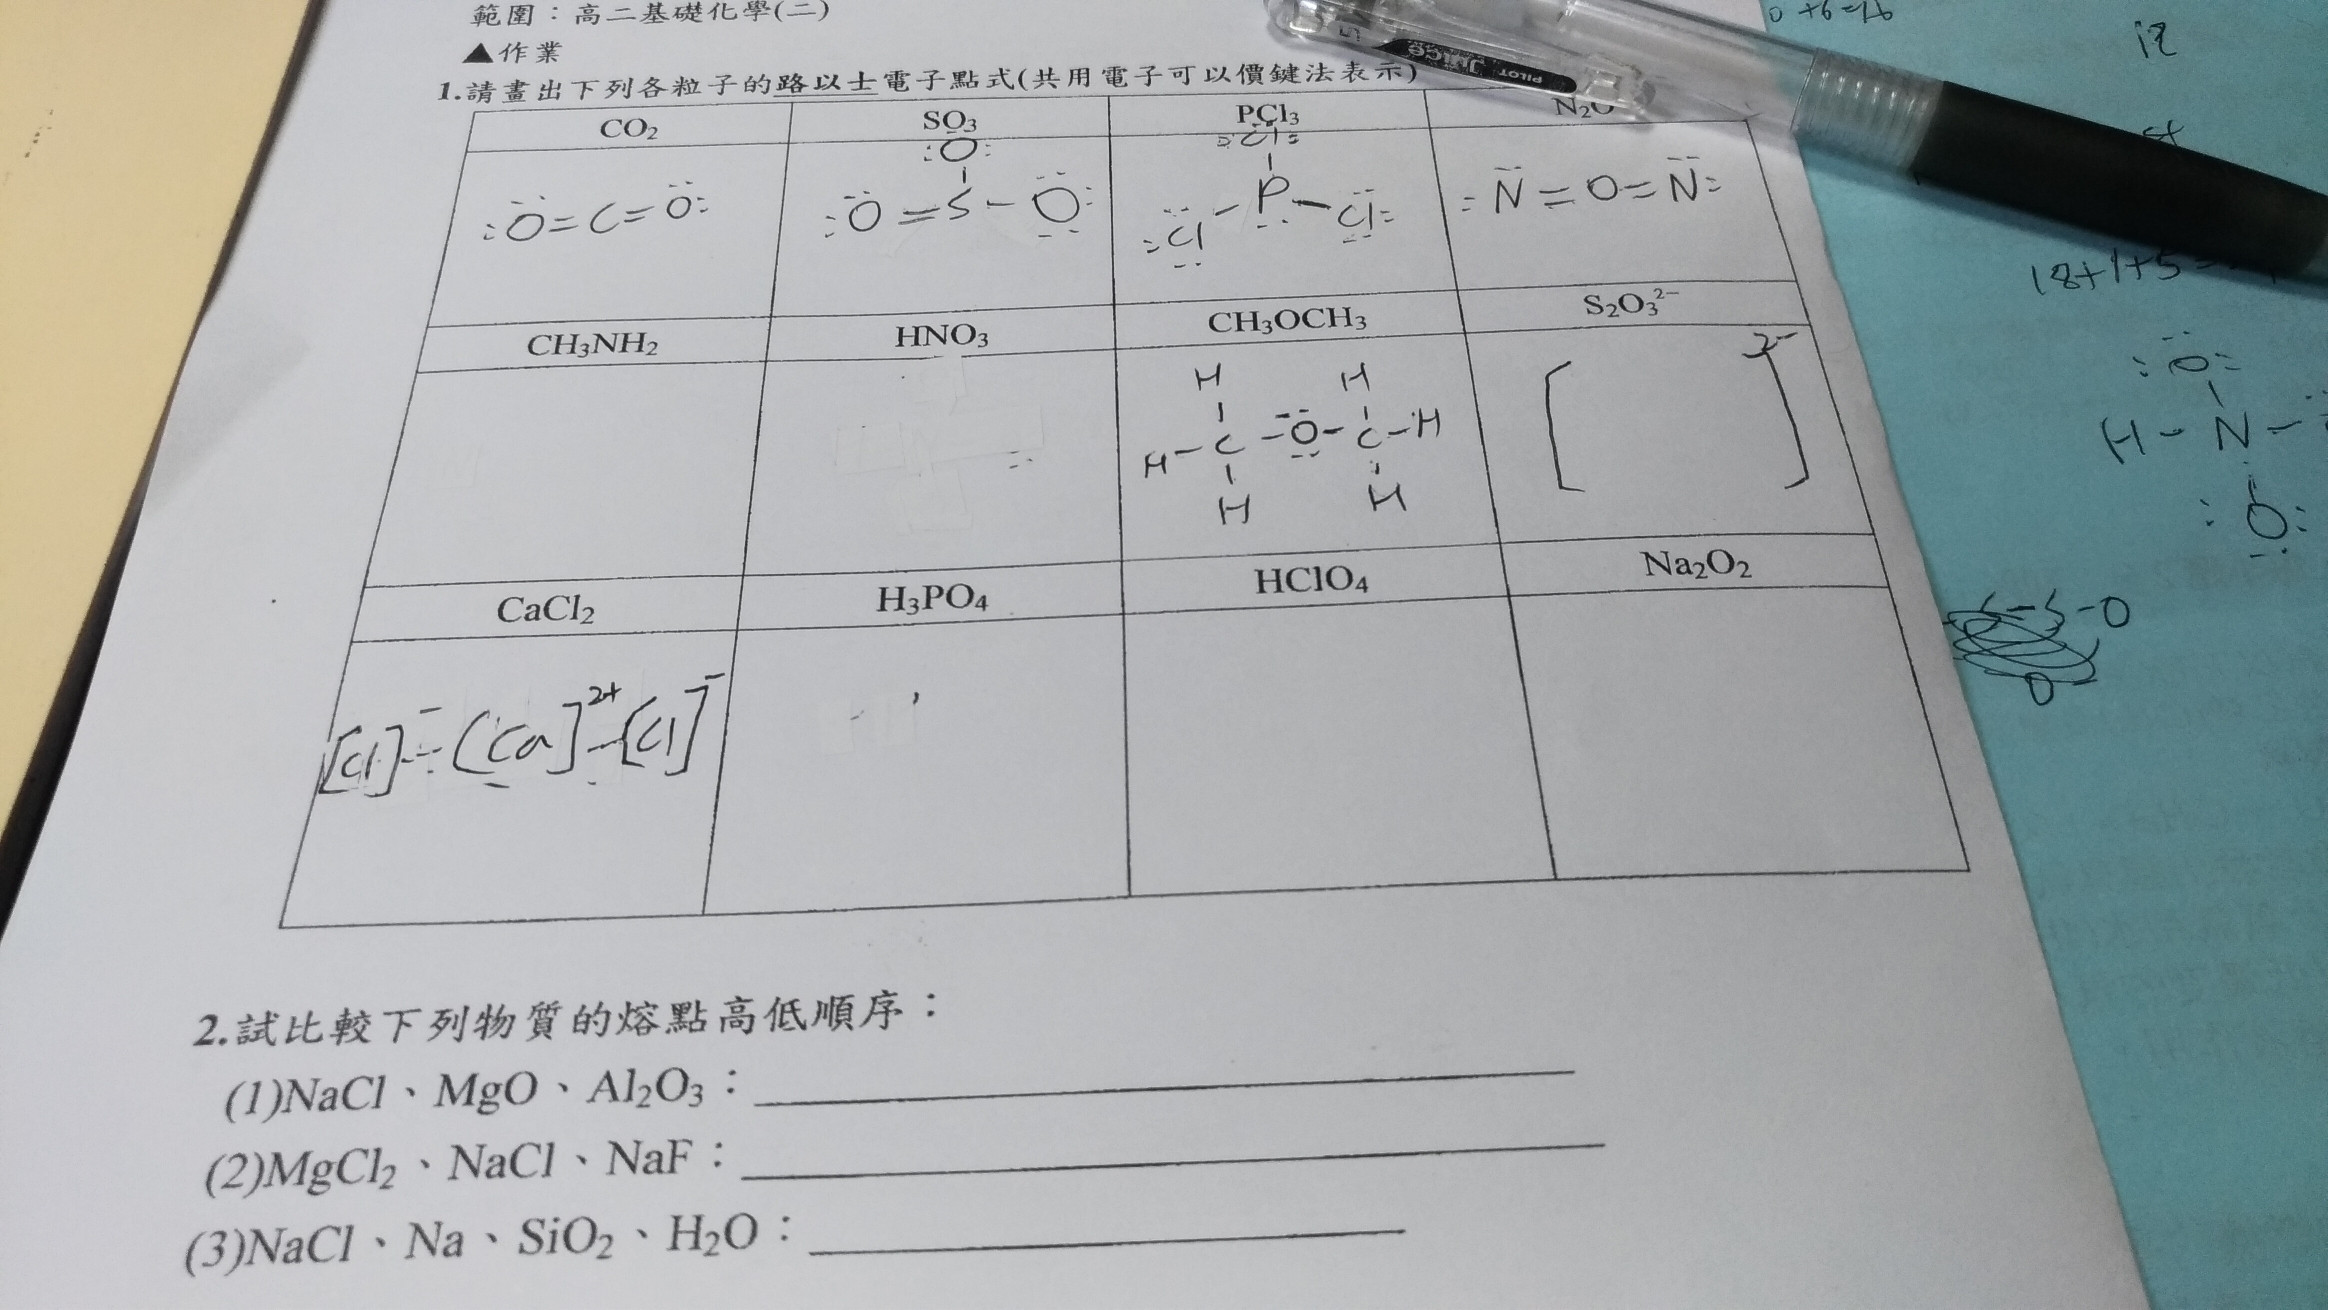 範圍：高二基礎化學(二)
▲作業
1.請畫出下列各粒子的路以士電子點式(共用電子可以價鍵法表示)
CO₂ SO₃ PCl₃ N₂O
:Ö=C=Ö:
:O:
:Ö=S-O:
:Cl:
:Cl-P-Cl:
:N=O=N:
CH₃NH₂ HNO₃ CH₃OCH₃ S₂O₃²⁻
H H
H-C-O-C-H
H H
[ ]²⁻
CaCl₂ H₃PO₄ HClO₄ Na₂O₂
[Cl]⁻ [Ca]²⁺ [Cl]⁻
2.試比較下列物質的熔點高低順序：
(1)NaCl、MgO、Al₂O₃：
(2)MgCl₂、NaCl、NaF：
(3)NaCl、Na、SiO₂、H₂O：
PILOT Juice
18+1+5=
:O:
H-N-
:O:
S-O
O